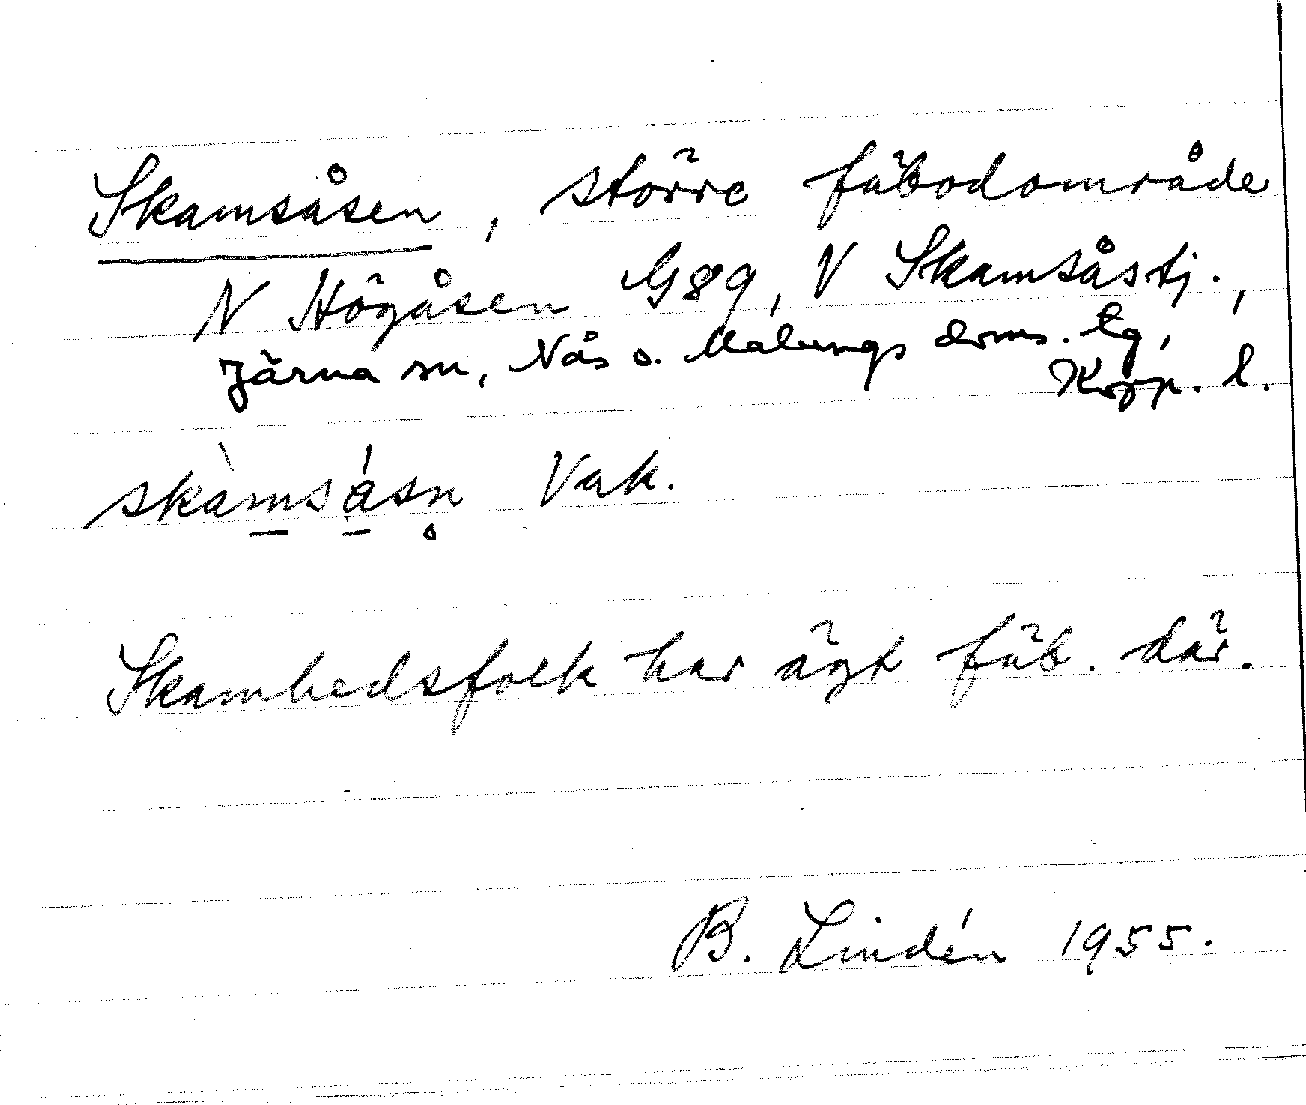 Skamsåsen, större fäbodområde
N Högåsen G89, V Skamsåstj.,
Järna sn, Nås o. Malungs doms. tg,
Kopp. l.
skàmsásn̥ Vak.
Skamhedsfolk har ägt fäb. där.
B. Lindén 1955.